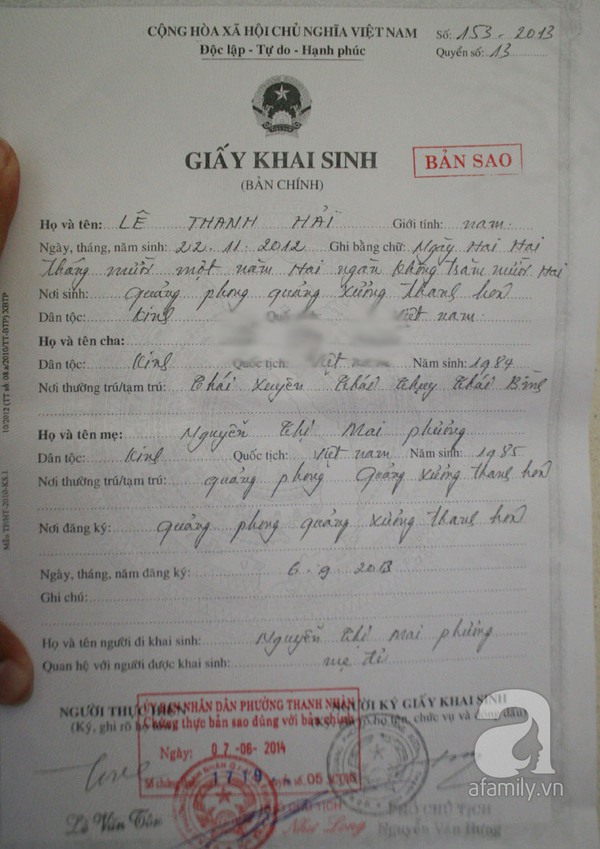 CỘNG HÒA XÃ HỘI CHỦ NGHĨA VIỆT NAM
Độc lập - Tự do - Hạnh phúc
Số: 153 - 2013
Quyển số: 13
GIẤY KHAI SINH
(BẢN CHÍNH)
BẢN SAO
Họ và tên: LÊ THANH HẢI Giới tính: nam
Ngày, tháng, năm sinh: 22.11.2012 Ghi bằng chữ: Ngày Hai Hai
tháng mười một năm Hai ngàn không trăm mười Hai
Nơi sinh: Quảng phong quảng xương thanh hoá
Dân tộc: Kinh Việt nam
Họ và tên cha:
Dân tộc: Kinh Quốc tịch: Việt nam Năm sinh: 1984
Nơi thường trú/tạm trú: thái xuyên thái thụy thái Bình
Họ và tên mẹ: Nguyễn thị Mai phương
Dân tộc: Kinh Quốc tịch: Việt nam Năm sinh: 1985
Nơi thường trú/tạm trú: quảng phong Quảng Xương thanh hoá
Nơi đăng ký: Quảng phong quảng xương thanh hoá
Ngày, tháng, năm đăng ký: 6.9 2013
Ghi chú:
Họ và tên người đi khai sinh: Nguyễn thị Mai phương
Quan hệ với người được khai sinh: mẹ đẻ
NGƯỜI THỰC HIỆN
(Ký, ghi rõ họ
NGƯỜI KÝ GIẤY KHAI SINH
họ tên, chức vụ và đóng dấu)
ỦY BAN NHÂN DÂN PHƯỜNG THANH NHÀN
Chứng thực bản sao đúng với bản chính
Ngày: 07-06-2014
Số chứng thực 1719 quyển số 05
Lê Văn Tôn
PHÓ CHỦ TỊCH
Như Long
PHÓ CHỦ TỊCH
Nguyễn Văn Hưng
Mẫu TP/HT-2010-KS.1
10/2012 (TT số: 08.a/2010/TT-BTP) XBTP
afamily.vn